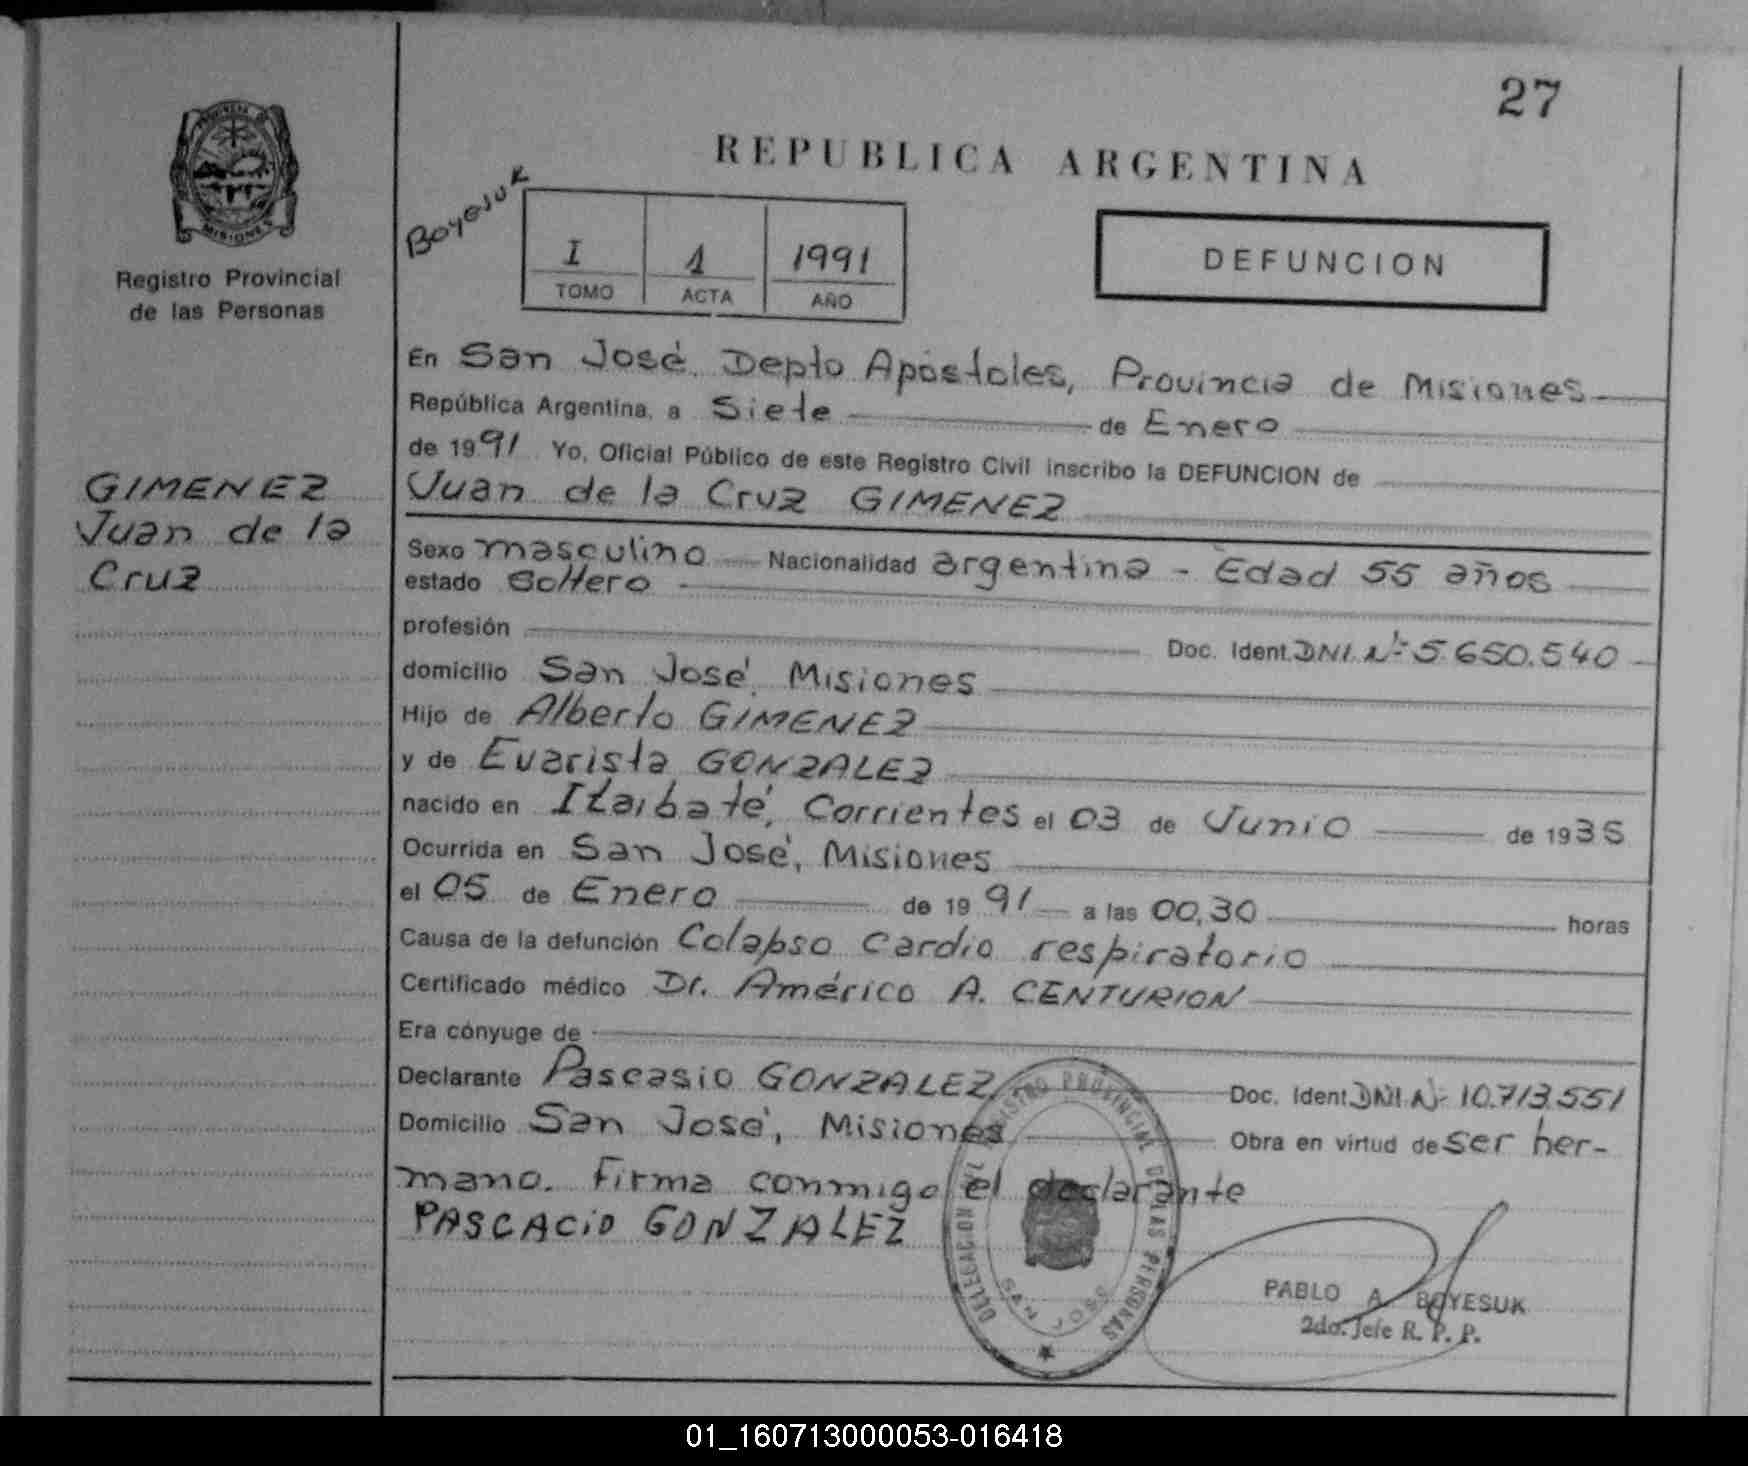 27
PROVINCIA D
MISIONES
Registro Provincial
de las Personas
REPUBLICA ARGENTINA
Boyesuk
I 1 1991
TOMO ACTA AÑO
DEFUNCION
En San José, Depto Apóstoles, Provincia de Misiones
República Argentina, a Siete de Enero
de 1991 Yo, Oficial Público de este Registro Civil inscribo la DEFUNCION de
Juan de la Cruz GIMENEZ
GIMENEZ
Juan de la
Cruz
Sexo masculino Nacionalidad argentina - Edad 55 años
estado Soltero
profesión Doc. Ident. DNI. Nº 5.650.540
domicilio San José, Misiones
Hijo de Alberto GIMENEZ
y de Evarista GONZALEZ
nacido en Itaibaté, Corrientes el 03 de Junio de 1935
Ocurrida en San José, Misiones
el 05 de Enero de 1991 a las 00,30 horas
Causa de la defunción Colapso Cardio respiratorio
Certificado médico Dr. Américo A. CENTURION
Era cónyuge de
Declarante Pascasio GONZALEZ Doc. Ident. DNI. Nº 10.713.551
Domicilio San José, Misiones Obra en virtud de ser her-
mano. Firma conmigo el declarante
PASCACIO GONZALEZ
DELEGACION DEL REGISTRO PROVINCIAL DE LAS PERSONAS
SAN JOSE
PABLO A. BOYESUK
2do. Jefe R. P. P.
01_160713000053-016418